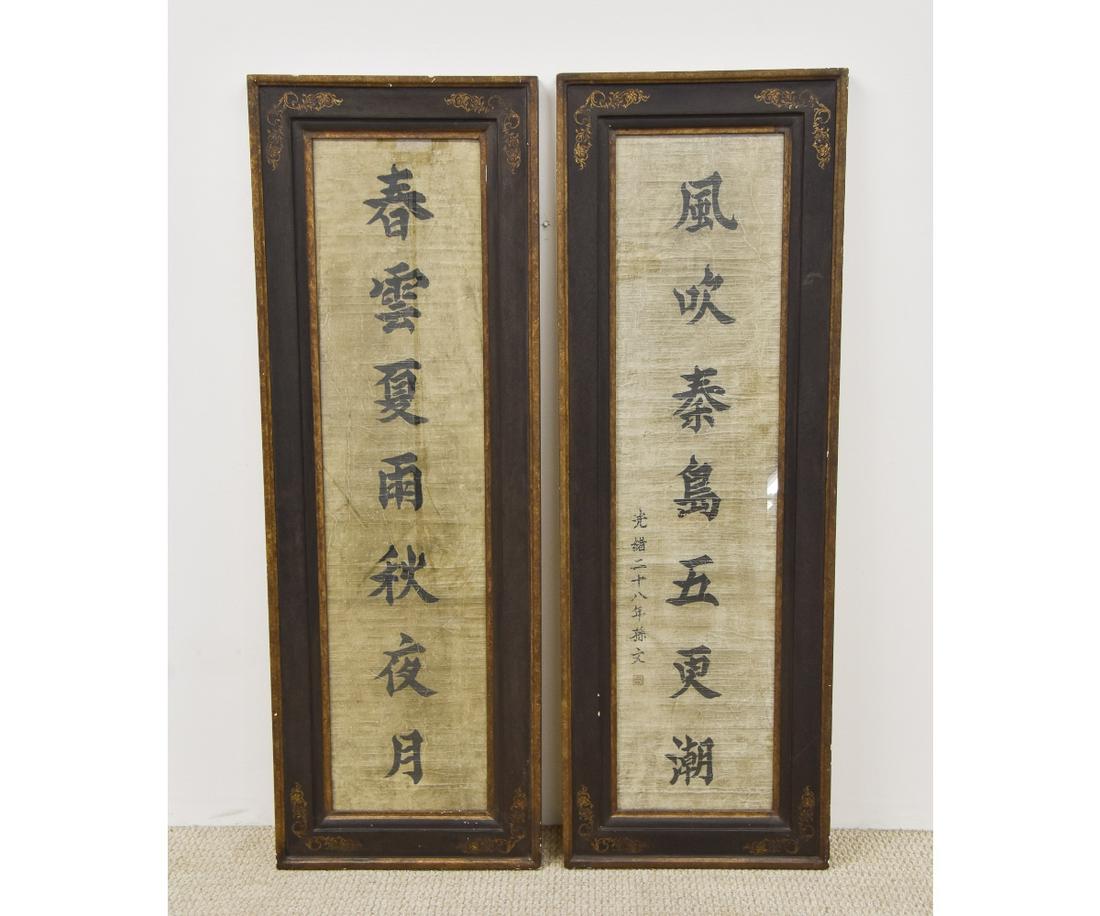 風吹秦島五更潮
光緒二十八年孫文
春雲夏雨秋夜月